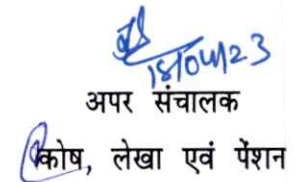 18/04/23
अपर संचालक
कोष, लेखा एवं पेंशन